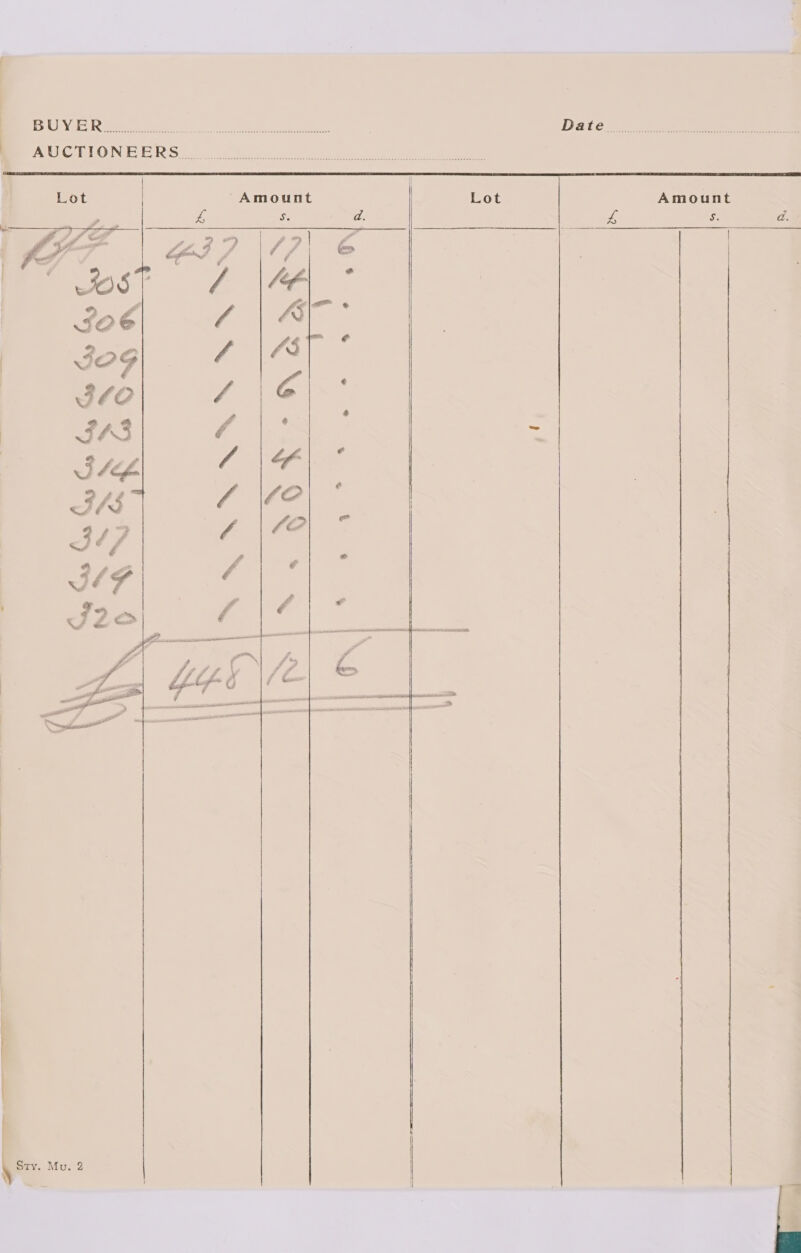 BUYER Date
AUCTIONEERS
Lot Amount Lot Amount
£ s. d. £ s. d.
B/F 437 17 6
305 1 14 •
306 1 15 •
309 1 15 •
310 1 6 •
313 1 • •
314 1 4 •
315 1 10 •
317 1 10 -
319 1 • •
320 1 1 •
£ 448 12 6
Sty. Mu. 2